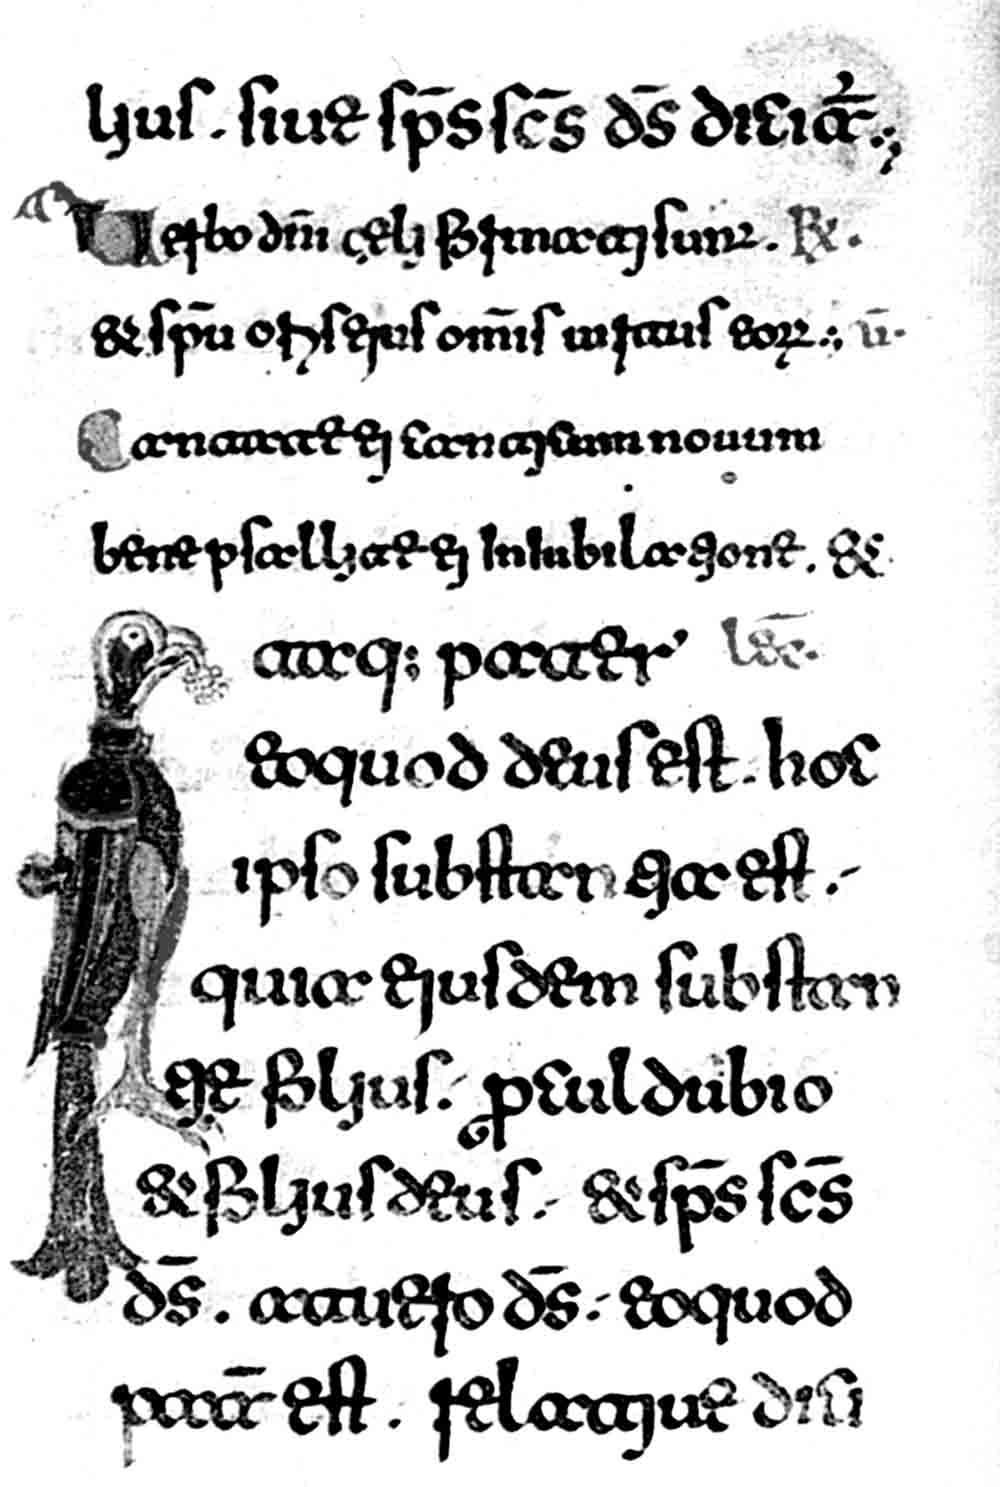 lius. siue sp̄s sc̄s ds̄ dicit̄.,
Uerbo dn̄i celi firmati sunt. R.
& sp̄u oris eius om̄is uirtus eorum., ū.
Cantate ei canticum nouum
bene psallite ei In Iubilatione. &
atq; pater lec̄.
eo quod deus est. hoc
ipso substantia est.
quia eiusdem substan
tie filius. procul dubio
& filius deus. & sp̄s sc̄s
ds̄. at uero ds̄. eo quod
pat̄ est. relatiue dici